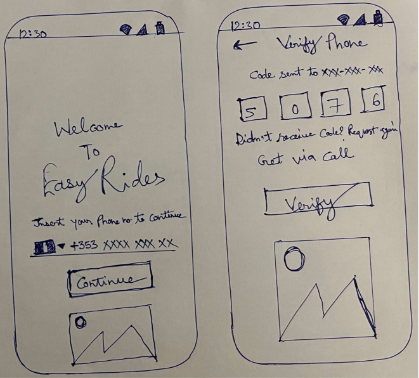 12:30
Welcome
To
Easy Rides
Insert your Phone no to continue
+353 XXXX XXX XX
Continue
12:30
← Verify Phone
Code sent to XXX-XXX-XX
5 0 7 6
Didn't receive Code? Request again
Get via Call
Verify